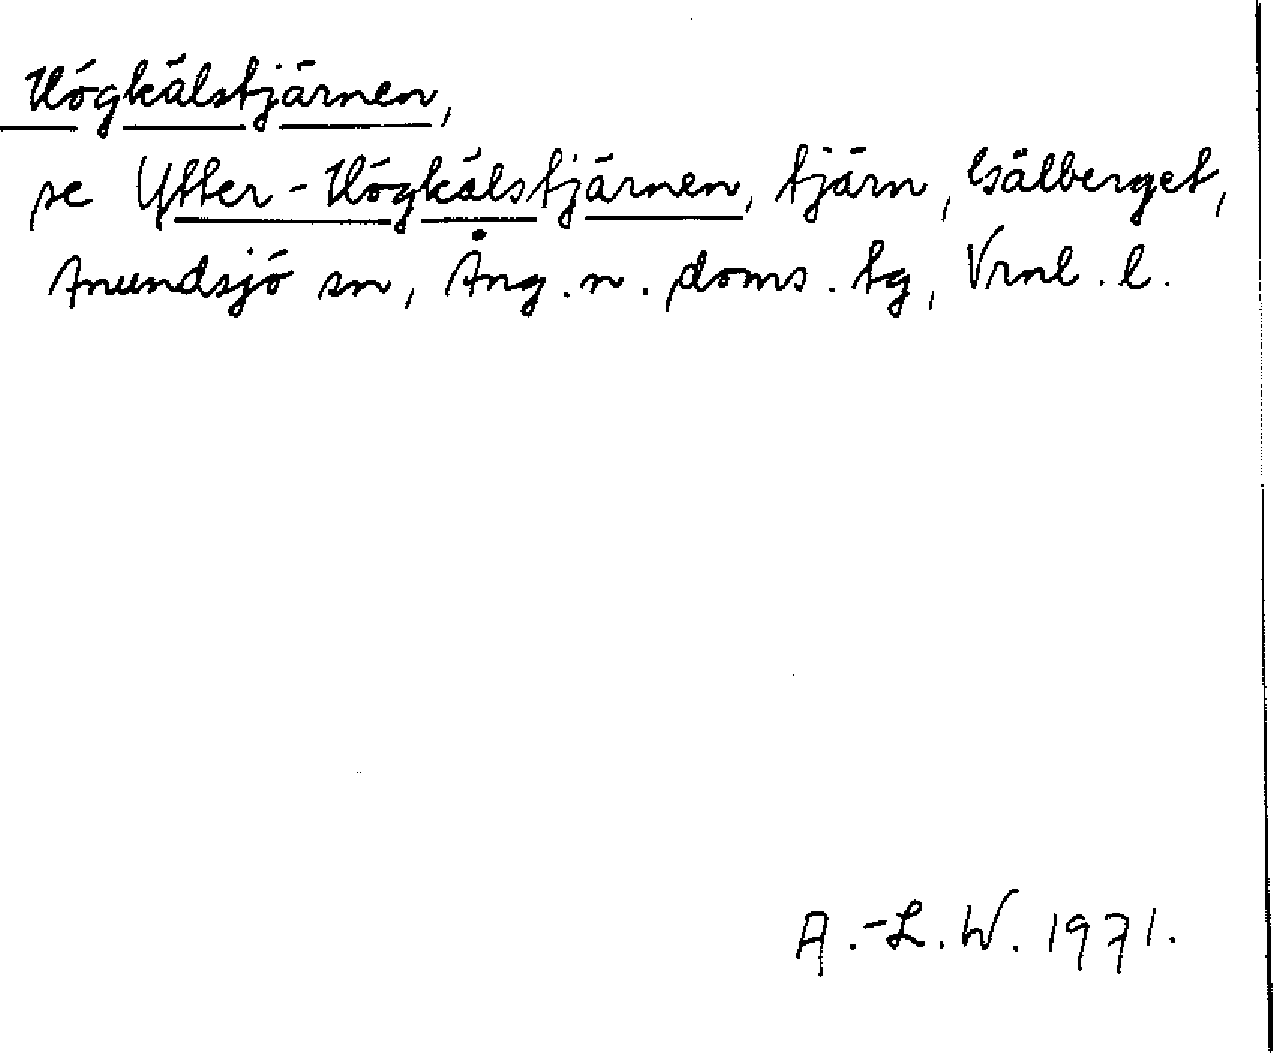 Högkälstjärnen,
se Ytter-Högkälstjärnen, tjärn, Gälberget,
Anundsjö sn, Ång. n. doms. tg, Vrnl. l.
A.-L. W. 1971.